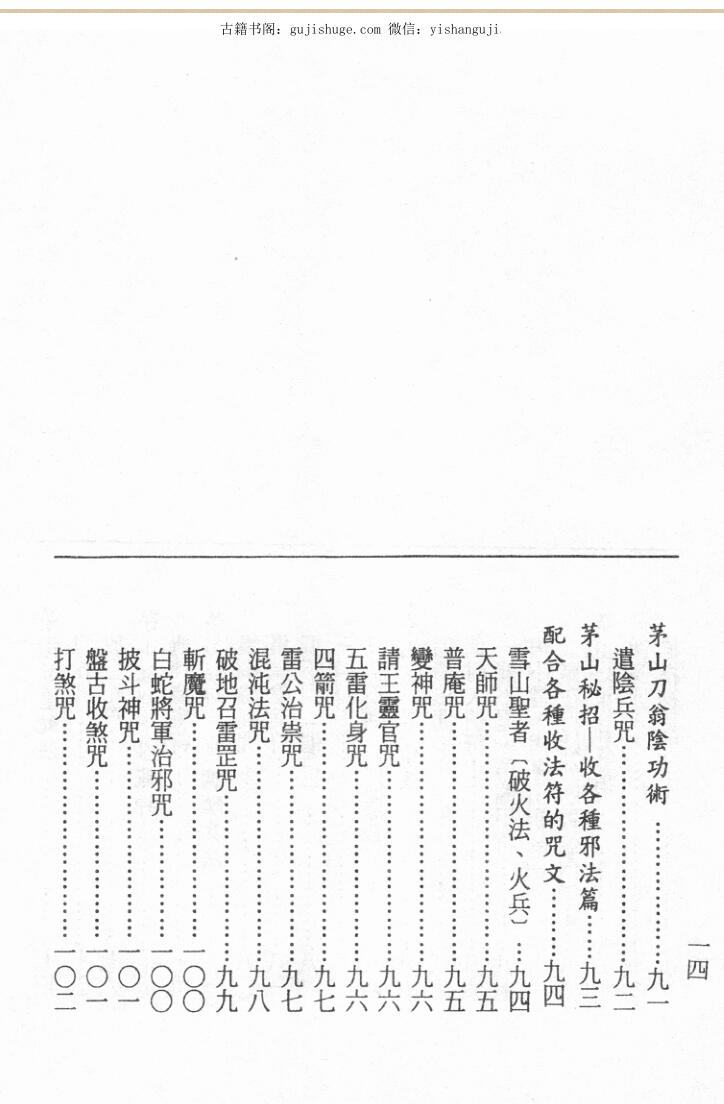 古籍书阁：gujishuge.com 微信：yishanguji
一四
茅山刀翁陰功術……………九一
遣陰兵咒……………………九二
茅山秘招—收各種邪法篇……九三
配合各種收法符的咒文………九四
雪山聖者〔破火法、火兵〕…九四
天師咒………………………九五
普庵咒………………………九五
變神咒………………………九六
請王靈官咒…………………九六
五雷化身咒…………………九六
四箭咒………………………九七
雷公治祟咒…………………九七
混沌法咒……………………九八
破地召雷罡咒………………九九
斬魔咒………………………一〇〇
白蛇將軍治邪咒……………一〇〇
披斗神咒……………………一〇一
盤古收煞咒…………………一〇一
打煞咒………………………一〇二